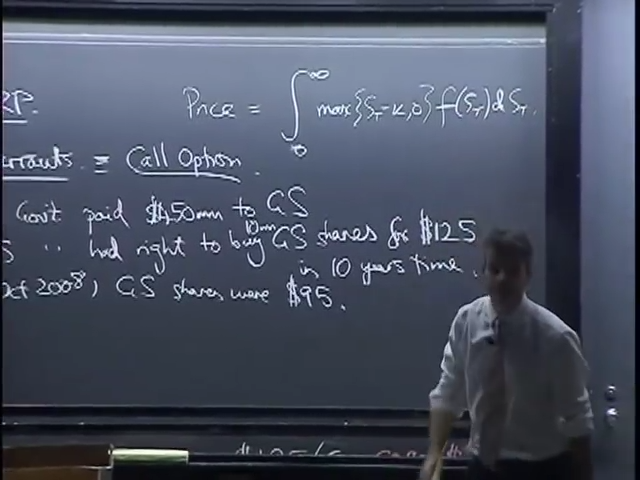 Price = ∫₀^∞ max{S_T-K,0} f(S_T) dS_T.
RP.
arrants ≡ Call Option.
Govt paid $450mm to GS
S " had right to buy 10mm GS shares for $125
in 10 years time.
Oct 2008, GS shares were $95.